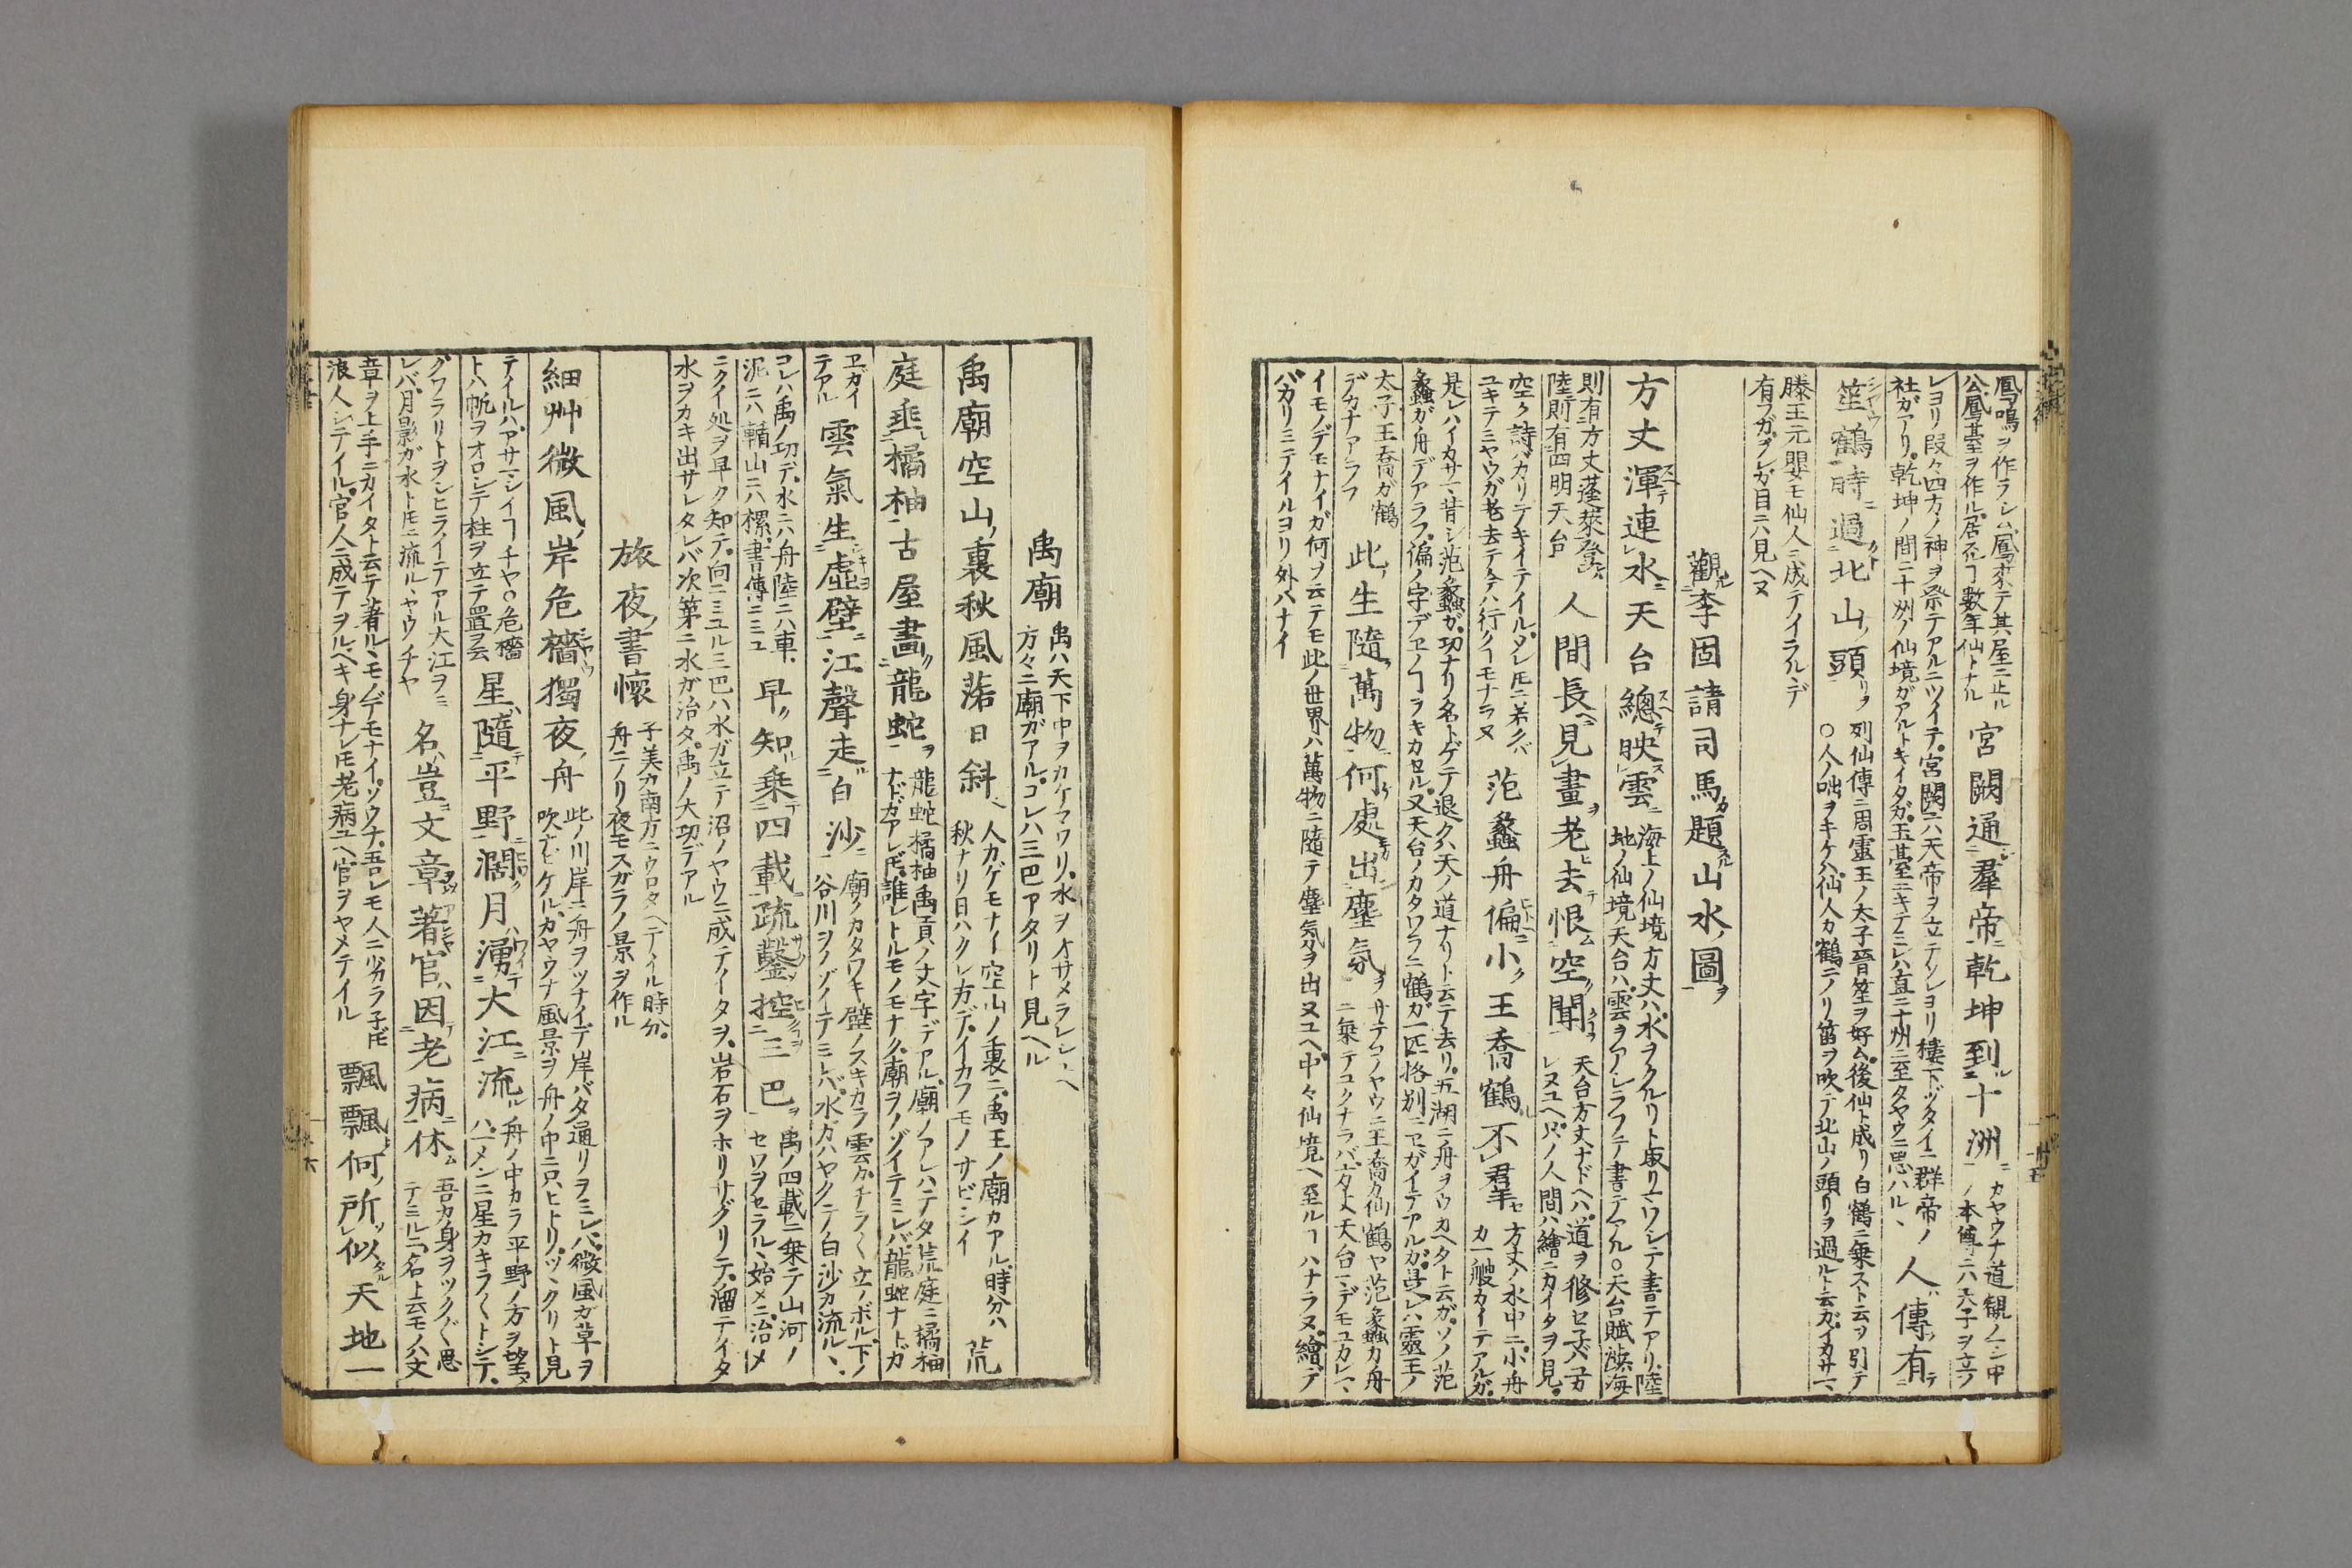 鳳鳴ヲ作ラシム鳳来テ其屋ニ止ル
公鳳䑓ヲ作ル居ルヿ数年仙トナル
宮闕通羣帝乾坤到十洲
カヤウナ道観ノ一シ中
レヨリ段々四方ノ神ヲ祭テアルニツイテ宮闕ニハ天帝ヲ立テソレヨリ樓下ヅタイニ群帝ノ
社ガアリ乾坤ノ間ニ十州ノ仙境ガアルトキイタガ玉䑓ニキテミレハ直ニ十州ニ至タヤウニ思ハルヽ
人傳有
笙鶴時過北山頭
列仙傳ニ周靈王ノ太子晉笙ヲ好ム後仙ト成リ白鶴ニ乗スト云ヲ引テ
○人ノ咄ヲキケハ仙人カ鶴ニノリ笛ヲ吹テ北山ノ頭リヲ過ルト云ガイカサマ
滕王元嬰モ仙人ニ成テイラルヽデ
有フガヲレガ目ニハ見ヘヌ
觀李固請司馬題山水圖
方丈渾連水天台總映雲
海上ノ仙境方丈ハ水ヲクルリト取リマワシテ書テアリ陸
地ノ仙境天台ハ雲ヲアシラフテ書テアル○天台賦渉海
則有方丈蓬莱登
陸則有四明天台
人間長見畫老去恨空聞
天台方丈ナドヘハ道ヲ修セ子バ至
レヌユヘ只ノ人間ハ繪ニカイタヲ見
空ク詩バカリテキイテイルダレモ若クバ
ユキテミヤウガ老去テ今ハ行クヿモナラヌ
范蠡舟偏小王喬鶴不羣
方丈ノ水中ニ小舟
カ一艘カイテアルガ
是レハイカサマ昔シ范蠡ガ功ナリ名トゲテ退クハ天ノ道ナリト云テ去リ五湖ニ舟ヲウカヘタト云ガソノ范
蠡ガ舟デアラフ偏ノ字デヱノヿラキカセル又天台ノカタワラニ鶴ガ一匹格別ニヱガイテアルガ是レハ靈王ノ
太子王喬ガ鶴
デカナアラフ
此生隨萬物何處出塵氛
イモノデモナイガ何ヲ云テモ此ノ世界ハ萬物ニ隨テ塵気ヲ出ヌユヘ中々仙境ヘ至ルヿハナラヌ繪デ
バカリミテイルヨリ外ハナイ
禹廟
禹ハ天下中ヲカケマワリ水ヲオサメラレシユヘ
方々ニ廟ガアルコレハ三巴アタリト見ヘル
禹廟空山裏秋風落日斜
人カゲモナイ空山ノ裏ニ禹王ノ廟カアル時分ハ
秋ナリ日ハクレ方デイカフモノサビシイ
荒
庭垂橘柚古屋畫龍蛇
龍蛇橘柚禹貢ノ文字デアル廟ノアレハテタ荒庭ニ橘柚
ナドガアレモ誰レトルモノモナク廟ヲノゾイテミレバ龍蛇ナトガ
ヱガイ
テアル
雲氣生虛壁江聲走白沙
廟ノカタワキ壁ノスキカラ雲カチラ〱立ノボル下ノ
谷川ヲノゾイテミレバ水ガハヤクテ白沙カ流ルヽ
コレハ禹ノ功デ水ニハ舟陸ニハ車
泥ニハ輴山ニハ樏書傳ニミユ
早知乗四載疏鑿控三巴
禹ノ四載ニ乗テ山河ノ
セワヲセラルヽ始メニ治メ
ニクイ処ヲ早ク知テ向ニミユル三巴ハ水ガ立テ沼ノヤウニ成テイタヲ岩石ヲホリサグリテ溜テイタ
水ヲカキ出サレタレバ次第ニ水ガ治タ禹ノ大功デアル
旅夜書懷
子美カ南方ニウロタヘテイル時分
舟ニノリ夜モスガラノ景ヲ作ル
細艸微風岸危檣獨夜舟
此ノ川岸ニ舟ヲツナイデ岸バタ通リヲミレバ微風ガ草ヲ
吹ヒケルカヤウナ風景ヲ舟ノ中ニ只ヒトリツヽクリト見
テイルハアサマシイヿチヤ○危檣
トハ帆ヲオロシテ柱ヲ立テ置ヲ云
星隨平野濶月湧大江流
舟ノ中カラ平野ノ方ヲ望メ
バ一メンニ星カキラ〱トシテ
グワラリトヲシヒライテアル大江ヲミ
レバ月影ガ水トモニ流ルヽヤウヂヤ
名豈文章著官因老病休
吾カ身ヲツク〲思
テミルニ名ト云モノハ文
章ヲ上手ニカイタト云テ著ルヽモノデモナイソウナ吾レモ人ニ劣ラ子トモ
浪人シテイル官人ニ成テヲルベキ身ナレトモ老病ユヘ官ヲヤメテイル
飄飄何所似天地一